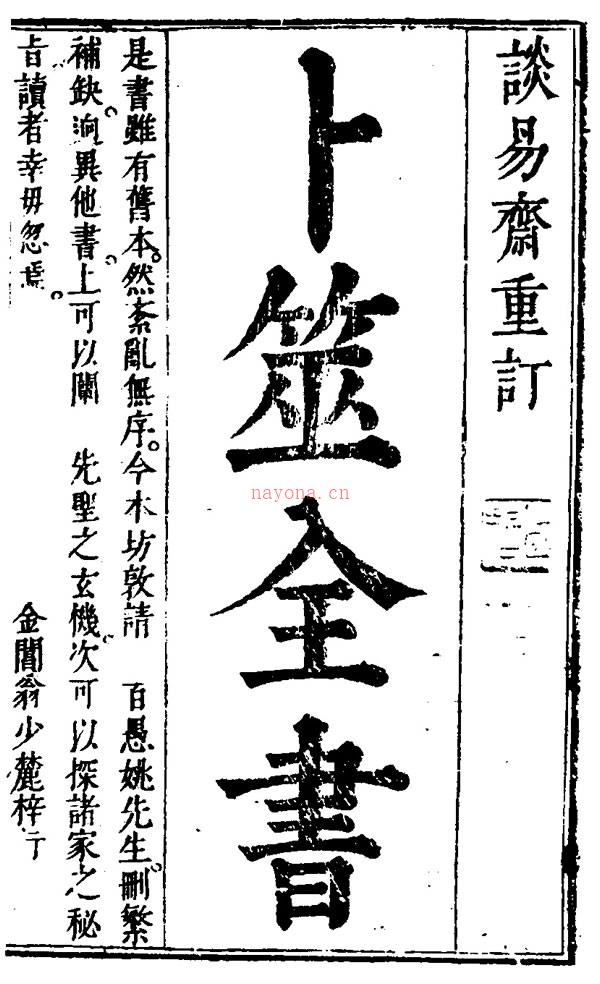 談易齋重訂
卜筮全書
是書雖有舊本。然紊亂無序。今本坊敦請 百愚姚先生刪繁
補缺。逈異他書。上可以闡 先聖之玄機。次可以探諸家之秘
旨。讀者幸毋忽焉。
金閶翁少麓梓行
nayona.cn